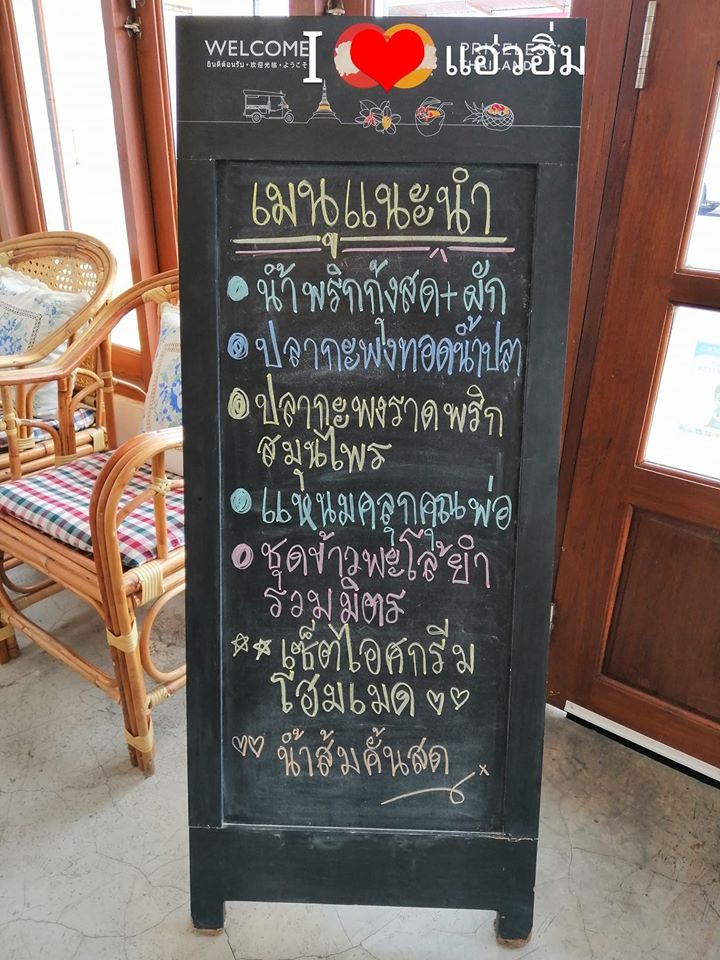 WELCOME
ยินดีต้อนรับ • 欢迎光临 • ようこそ
PRICELESS
THAILAND
I ❤ แอ่วอิ่ม
เมนูแนะนำ
น้ำพริกกุ้งสด+ผัก
ปลากะพงทอดน้ำปลา
ปลากะพงราดพริก
สมุนไพร
แหนมคลุกคุณพ่อ
ชุดข้าวพะโล้ยำ
รวมมิตร
เซ็ตไอศกรีม
โฮมเมด
น้ำส้มคั้นสด